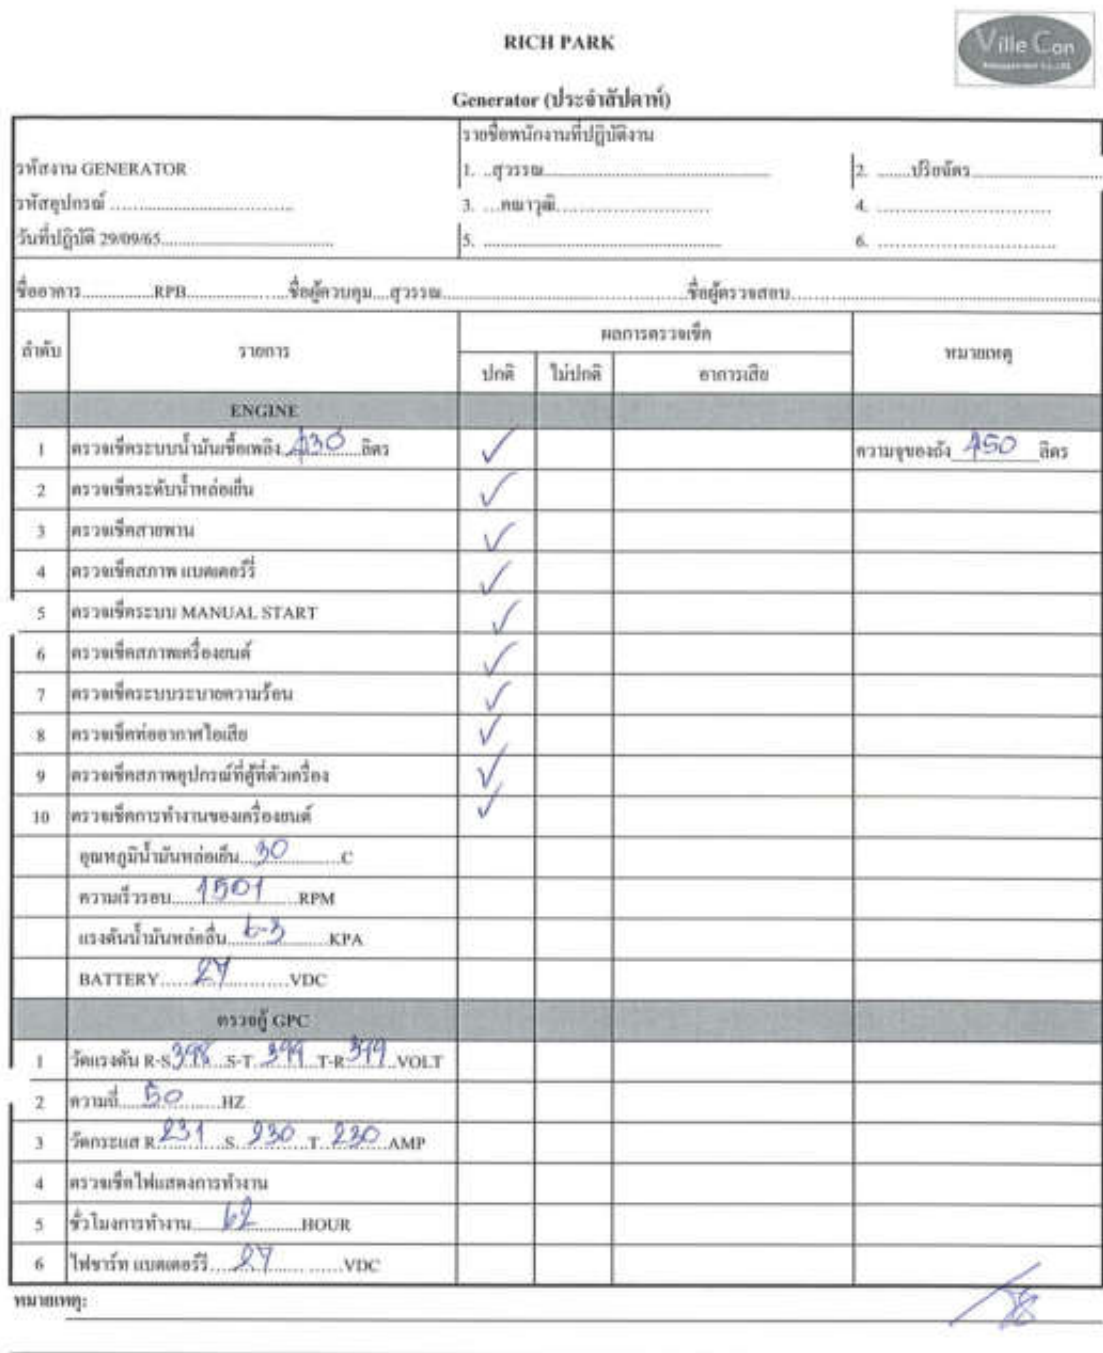 RICH PARK
Ville Con
Management Co.,Ltd.
Generator (ประจำสัปดาห์)
รายชื่อพนักงานที่ปฏิบัติงาน
รหัสงาน GENERATOR
1. ..สุวรรณ
2. .......ปรียฉัตร
รหัสอุปกรณ์
3. ....คณาวุฒิ
4.
วันที่ปฏิบัติ 29/09/65
5.
6.
ชื่ออาคาร................RPB......................ชื่อผู้ควบคุม....สุวรรณ......................ชื่อผู้ตรวจสอบ
ลำดับ รายการ ผลการตรวจเช็ค หมายเหตุ
ปกติ ไม่ปกติ อาการเสีย
ENGINE
1 ตรวจเช็คระบบน้ำมันเชื้อเพลิง 430 ลิตร ✓ ความจุของถัง 450 ลิตร
2 ตรวจเช็คระดับน้ำหล่อเย็น ✓
3 ตรวจเช็คสายพาน ✓
4 ตรวจเช็คสภาพ แบตเตอร์รี่ ✓
5 ตรวจเช็คระบบ MANUAL START ✓
6 ตรวจเช็คสภาพเครื่องยนต์ ✓
7 ตรวจเช็คระบบระบายความร้อน ✓
8 ตรวจเช็คท่ออากาศไอเสีย ✓
9 ตรวจเช็คสภาพอุปกรณ์ที่ตู้ที่ตัวเครื่อง ✓
10 ตรวจเช็คการทำงานของเครื่องยนต์ ✓
อุณหภูมิน้ำมันหล่อเย็น 30 C
ความเร็วรอบ 1501 RPM
แรงดันน้ำมันหล่อลื่น 6-3 KPA
BATTERY 27 VDC
ตรวจตู้ GPC
1 วัดแรงดัน R-S 398 S-T 399 T-R 399 VOLT
2 ความถี่ 50 HZ
3 วัดกระแส R 231 S 230 T 230 AMP
4 ตรวจเช็คไฟแสดงการทำงาน
5 ชั่วโมงการทำงาน 62 HOUR
6 ไฟชาร์ท แบตเตอร์รี 27 VDC
หมายเหตุ: